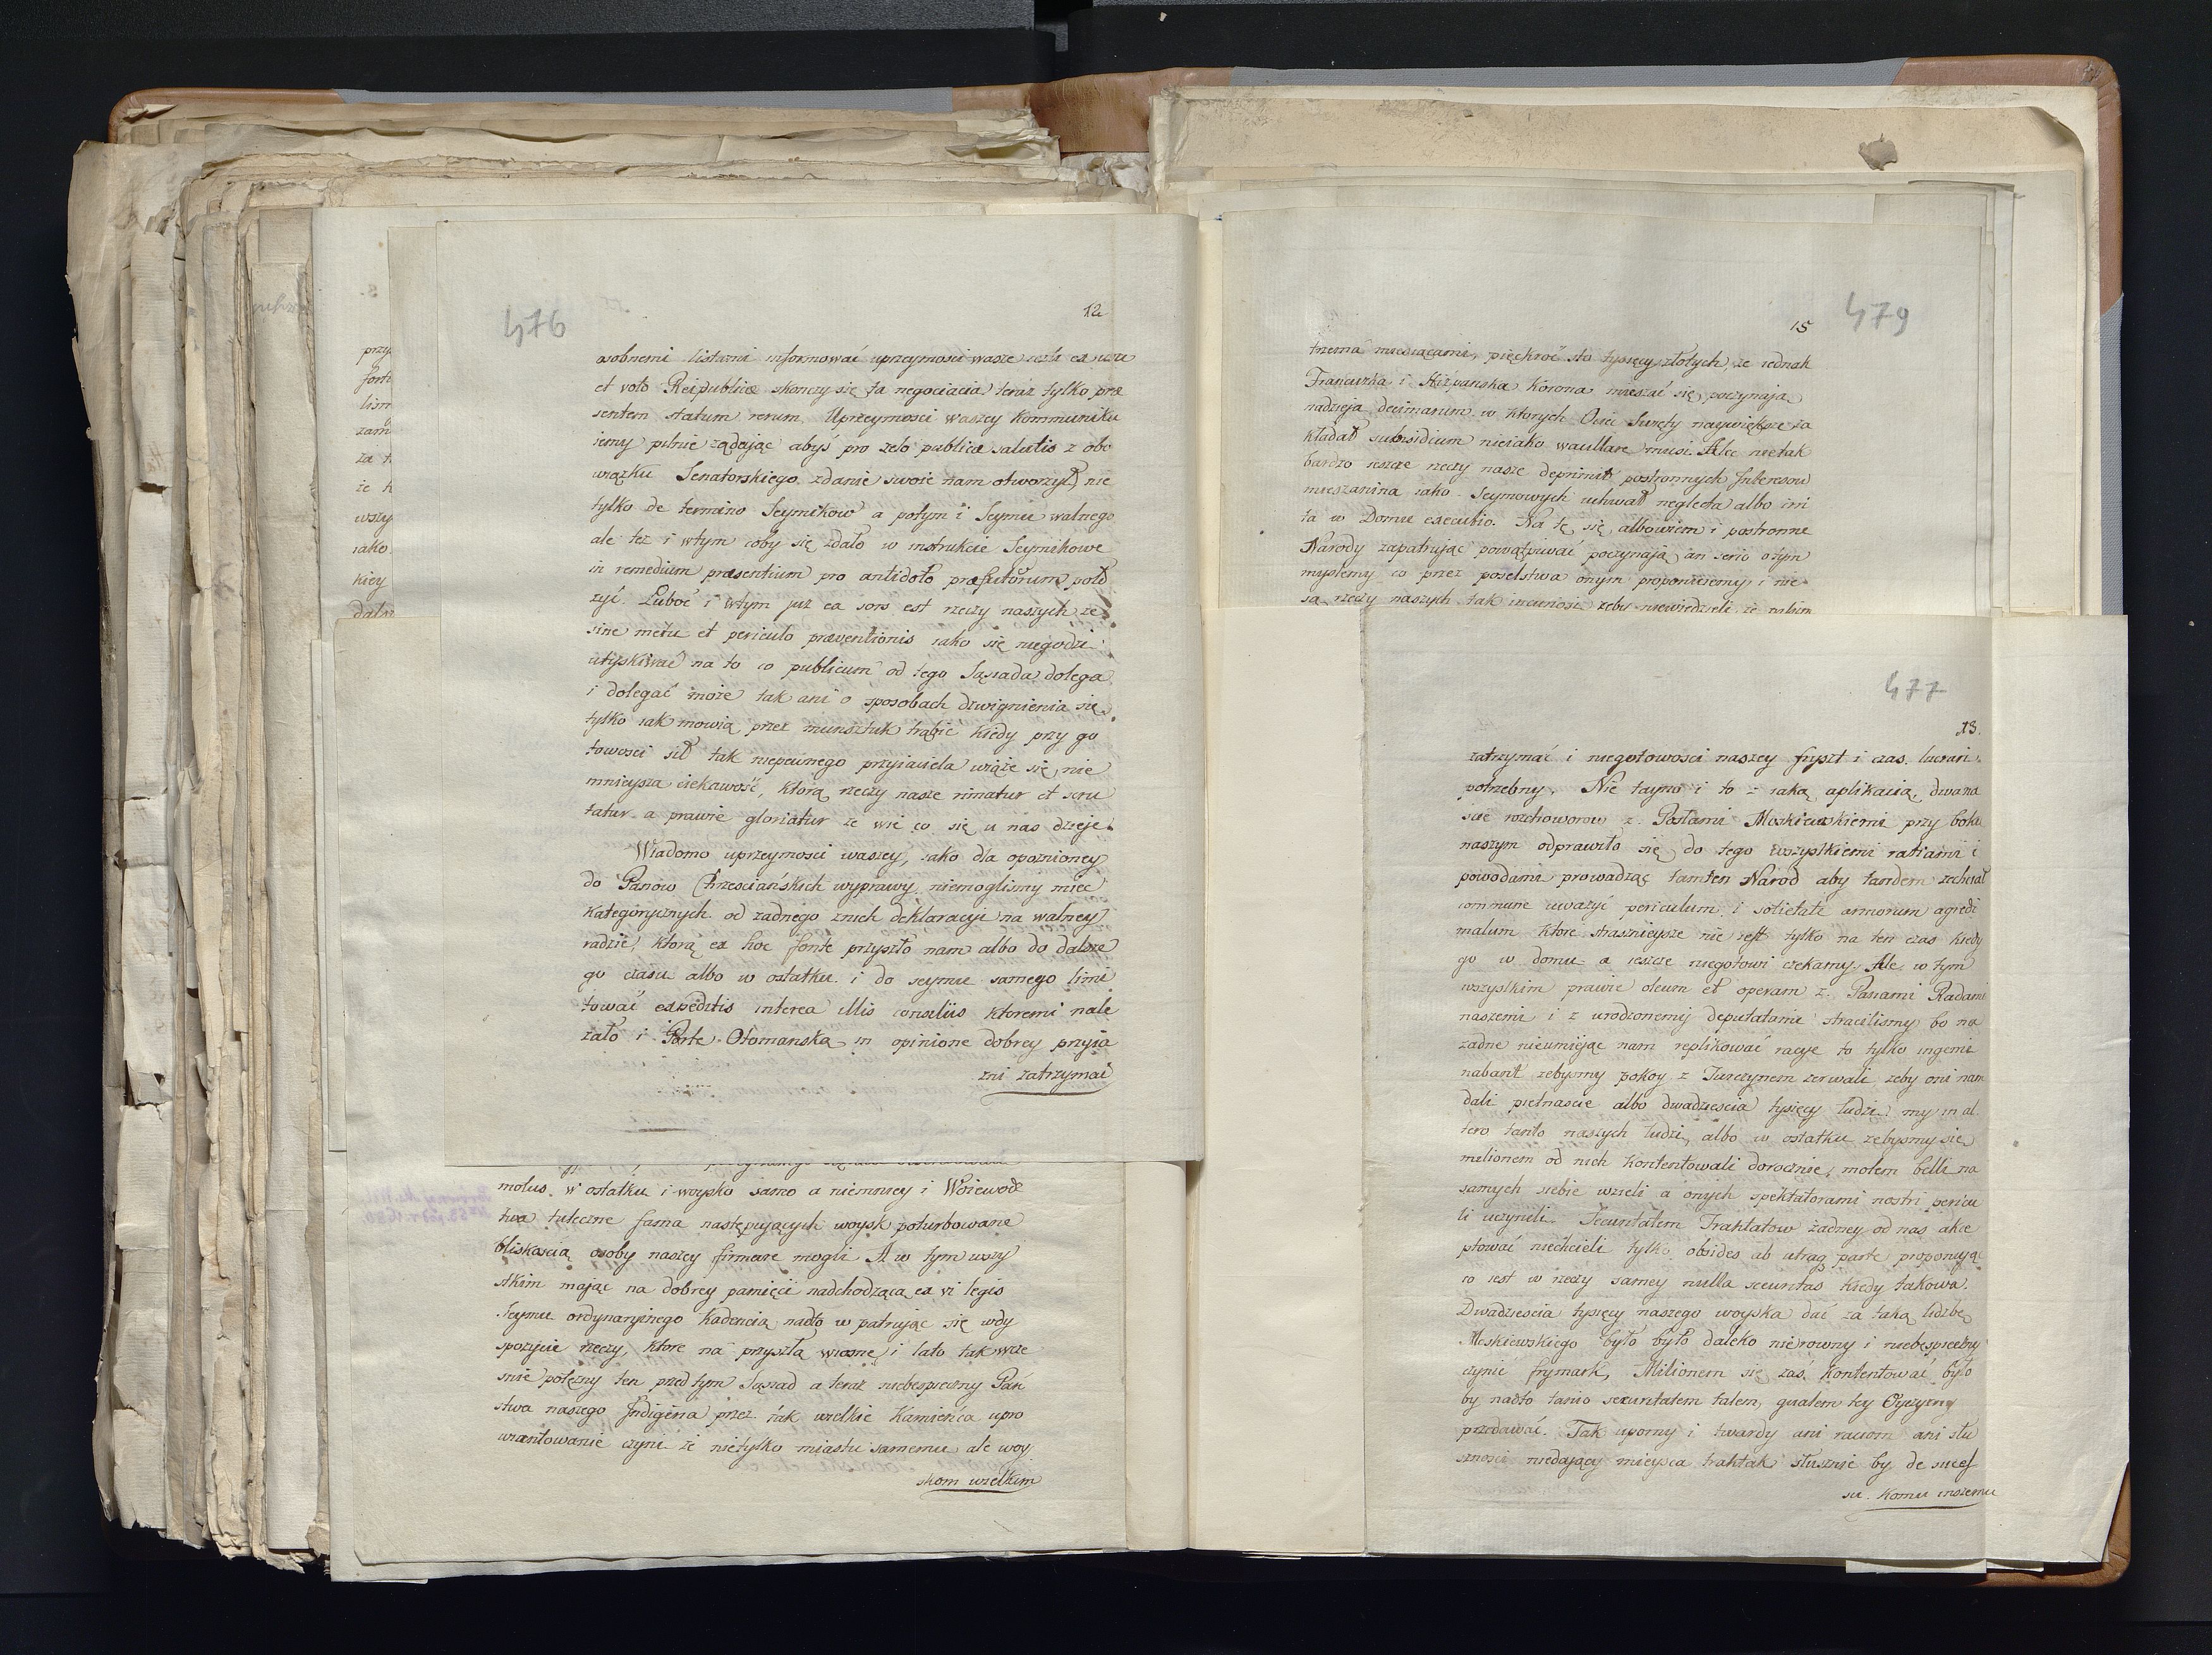 476
12
osobnemi listami informować uprzeymosci wasze jeżli ex usu
et voto Reipublicæ skonczy się ta negociacia teraz tylko præ
sentem statum rerum Uprzeymosci waszey kommuniku
iemy pilnie żądając abyś pro zelo publicæ salutis z obo
wiązku Senatorskiego zdanie swoie nam otworzył, nie
tylko de termino Seymikow a potym i Seymu walnego
ale też i wtym coby się zdało w instrukcie Seymikowe
in remedium præsentium pro antidoto præfuturum poło
żyć. Luboć i wtym już ea sors est rzeczy naszych że
sine metu et periculo præventionis iako się niegodzi
utyskiwać na to co publicum od tego Sąsiada dolega
i dolegać może tak ani o sposobach dzwignienia się
tylko iak mowią przez munsztuk trąbić kiedy przy go
towosci sił tak niepewnego przyiaciela wiąże się nie
mnieysza ciekawość, ktorą rzeczy nasze rimatur et scru
tatur a prawie gloriatur że wie co się u nas dzieje.
Wiadomo uprzeymosci waszey, iako dla opoznioney
do Panow Chrzesciańskich wyprawy niemoglismy miec
kategorycznych od żadnego znich deklaracyi na walney
radzie, ktorą ex hoc fonte przyszło nam albo do dalsze
go czasu albo w ostatku i do seymu samego limi
tować expeditis interea illis consiliis ktoremi nale
żało i Porte Otomanską in opinione dobrey przyia
zni zatrzymać
molus. w ostatku i woysko samo a niemniey i Woiewodz
twa tuteczne fama następujących woysk poturbowane
bliskoscią osoby naszey firmare mogli A w tym wszy
stkim mając na dobrey pamięci nadchodzącą ex vi legis
Seymu ordynaryinego kadencią nadto w patrując się wdy
spozycie rzeczy, ktore na przyszłą wiosnę i lato tak wcze
snie potężny ten przed tym Sąsiad a teraz niebespieczny Pań
stwa naszego Indigena przez tak wielkie Kamieńca upro
wiantowanie czyni że nietylko miastu samemu ale woy
skom wielkim
479
15
trzema miesiącami, pięćkroć sto tysięcy złotych, że iednak
Francuzka i Hiżpanska Korona mieszać się poczynają
nadzieja decimarum w ktorych Ociec Swięty naywiększe za
kładał subsidium nieiako vacillare musi. Ale nie tak
bardzo ieszcze rzeczy nasze deprimit postronnych Interesow
mieszanina iako Seymowych uchwał neglecta albo irri
ta w Domu executio. Na tę się albowiem i postronne
Narody zapatrując powątpiwać poczynają an serio o tym
myslemy co przez poselstwa onym proponuiemy i nie
są rzeczy naszych tak incuriosi żeby niewiedzieli że
477
13.
zatrzymać i niegotowosci naszey fryszt i czas lucrari
potrzebny. Nie tayno i to iaką aplikacią dwana
scie rozchoworow z Posłami Moskiewskiemi przy boku
naszym odprawiło się do tego wszystkiemi ratiami i
powodami prowadząc tamten Narod aby tandem zechciał
commune uważyć periculum i societate armorum agredi
malum ktore straszniejsze nie iest tylko na ten czas kiedy
go w domu a ieszcze niegotowi czekamy. Ale w tym
wszystkim prawie oleum et operam z Panami Radami
naszemi i z urodzonemi deputatami stracilismy bo na
żadne nieumiejąc nam replikować racye to tylko ingemi
nabant żebysmy pokoy z Turczynem zerwali żeby oni nam
dali pietnascie albo dwadziescia tysięcy ludzi my in al
tero tanto naszych ludzi, albo w ostatku żebysmy się
milionem od nich kontentowali dorocznie, molem belli na
samych siebie wzieli a onych spektatorami nostri pericu
li uczynili. Securitatem Traktatow żadney od nas akce
ptować niechcieli tylko obsides ab utraq parte proponują
co iest w rzeczy samey nulla securitas kiedy takowa.
Dwadziescia tysięcy naszego woyska dać za taką liczbę
Moskiewskiego było było daleko nierowny i niebespieczny
czynić frymark, Milionem się zaś kontentować było
by nadto tanio securitatem talem, qualem tey Oyczyzny
przedawać. Tak uporny i twardy ani raciom ani słu
sznosci niedający mieysca traktak słusznie by de succes
su komu inszemu